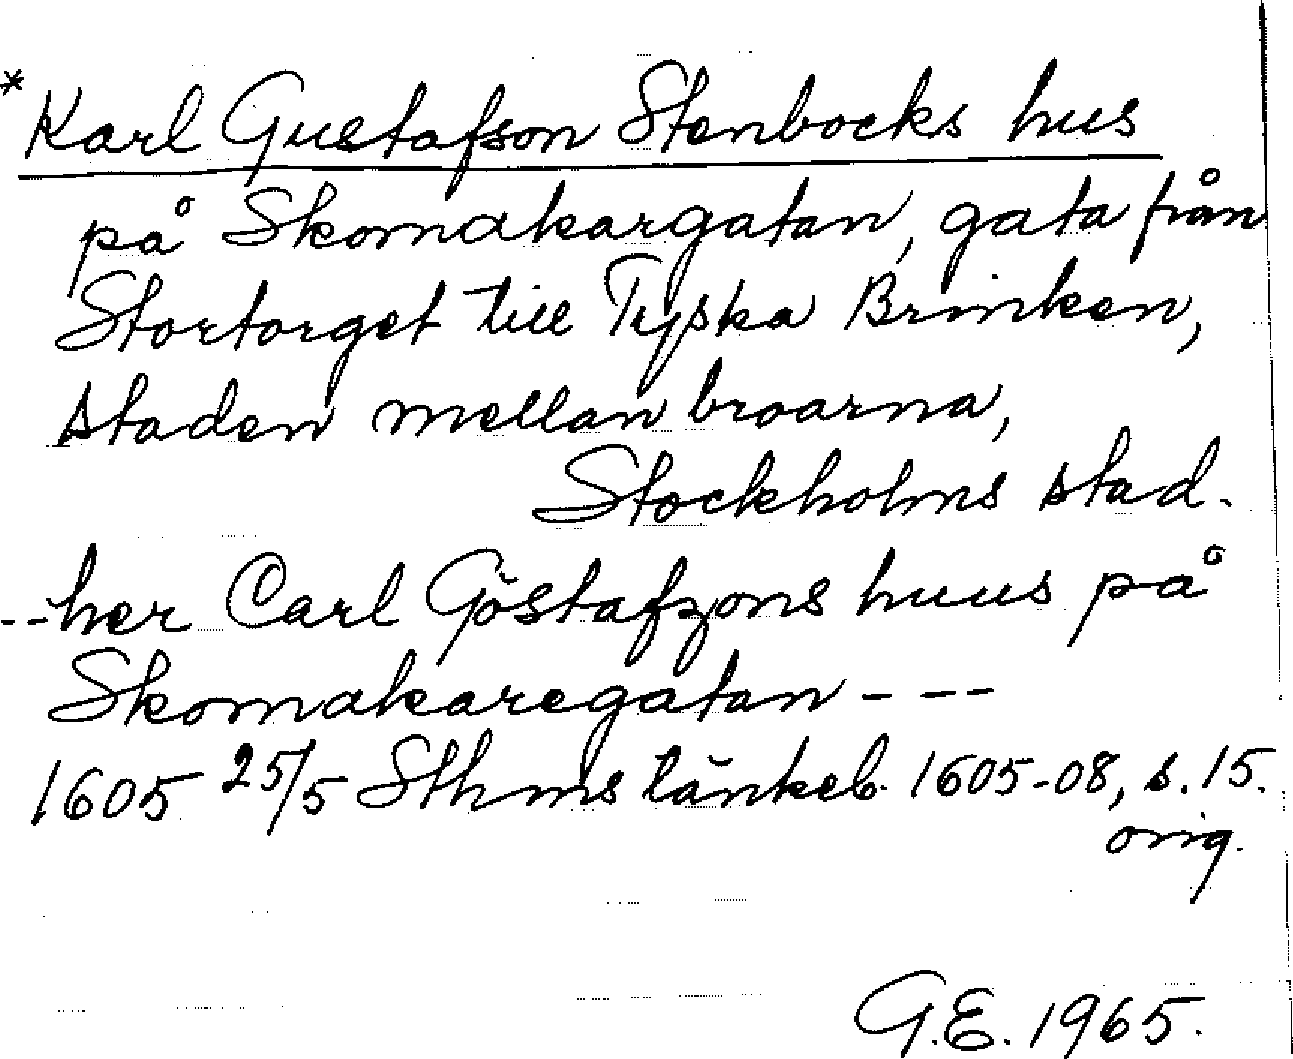 *Karl Gustafson Stenbocks hus
på Skomakargatan, gata från
Stortorget till Tyska Brinken,
staden mellan broarna,
Stockholms stad.
--her Carl Göstafzons huus på
Skomakaregatan---
1605 25/5 Sthms tänkeb. 1605-08, s. 15.
orig.
G.E. 1965.